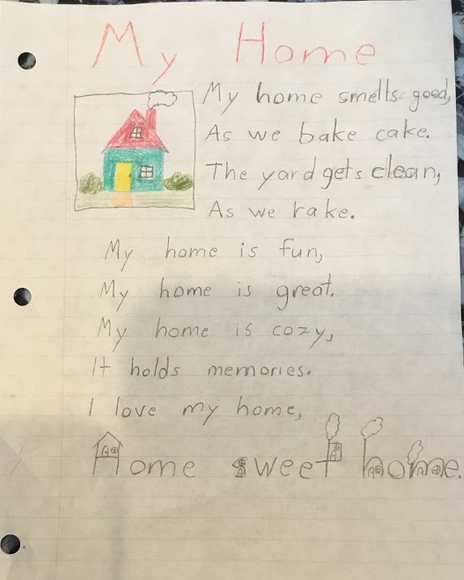 My Home
My home smells good,
As we bake cake.
The yard gets clean,
As we rake.
My home is fun,
My home is great.
My home is cozy,
It holds memories.
I love my home,
Home sweet home.